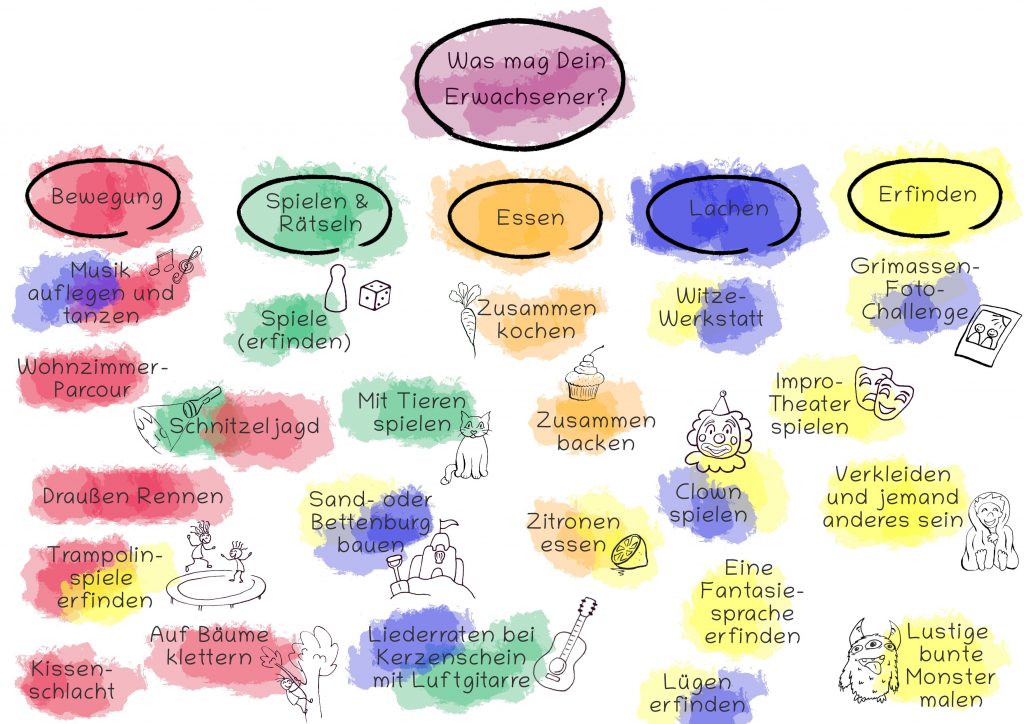 Was mag Dein
Erwachsener?
Bewegung
Spielen &
Rätseln
Essen
Lachen
Erfinden
Musik
auflegen und
tanzen
Spiele
(erfinden)
Zusammen
kochen
Witze-
Werkstatt
Grimassen-
Foto-
Challenge
Wohnzimmer-
Parcour
Schnitzeljagd
Mit Tieren
spielen
Zusammen
backen
Impro-
Theater
spielen
Draußen Rennen
Sand- oder
Bettenburg
bauen
Zitronen
essen
Clown
spielen
Verkleiden
und jemand
anderes sein
Trampolin-
spiele
erfinden
Eine
Fantasie-
sprache
erfinden
Auf Bäume
klettern
Liederraten bei
Kerzenschein
mit Luftgitarre
Lustige
bunte
Monster
malen
Kissen-
schlacht
Lügen
erfinden